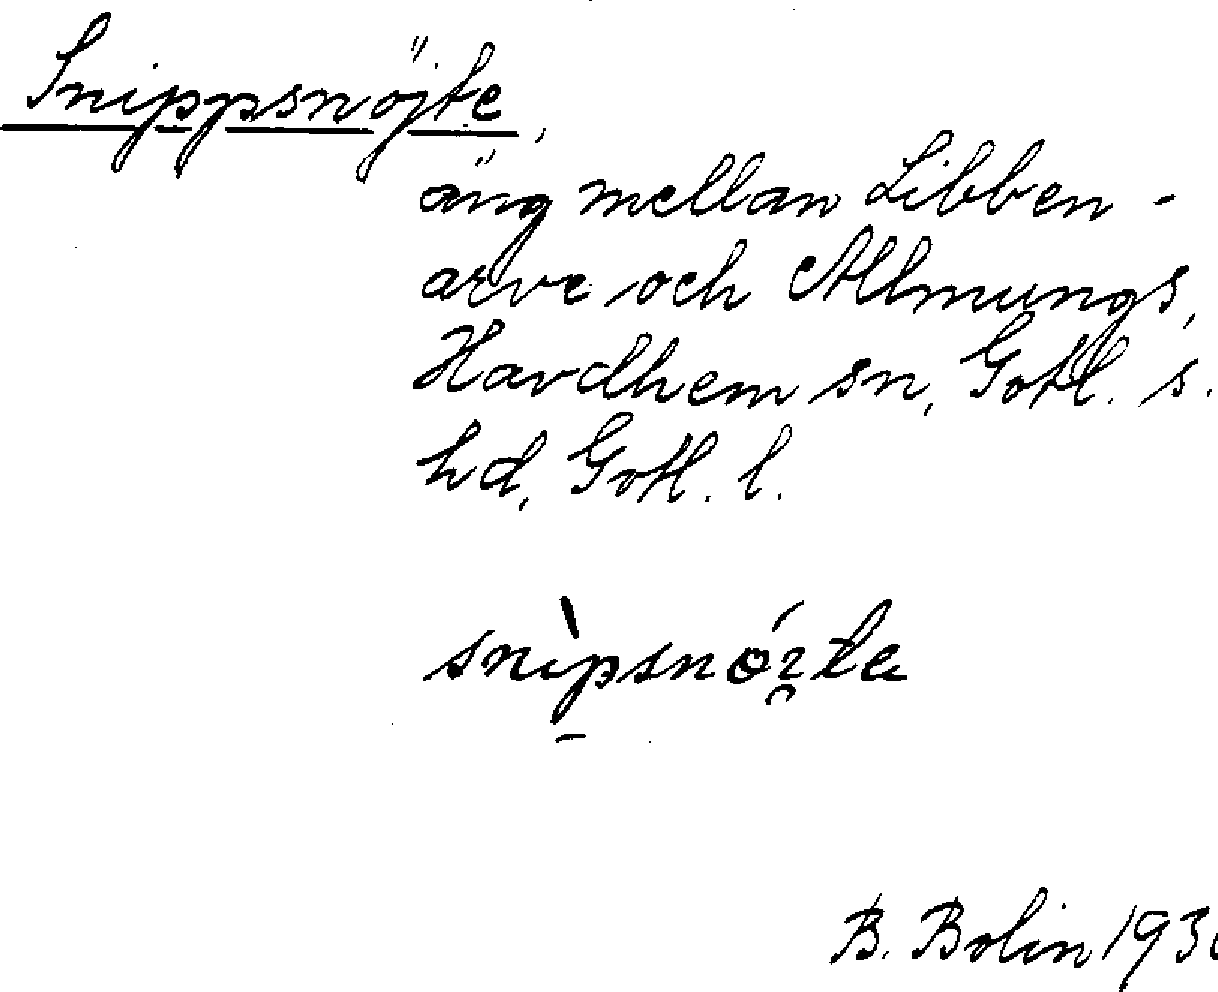 Snippsnöjte,
äng mellan Libben-
arve och Allmungs,
Havdhem sn, Gotl. s.
hd, Gotl. l.
B. Bolin